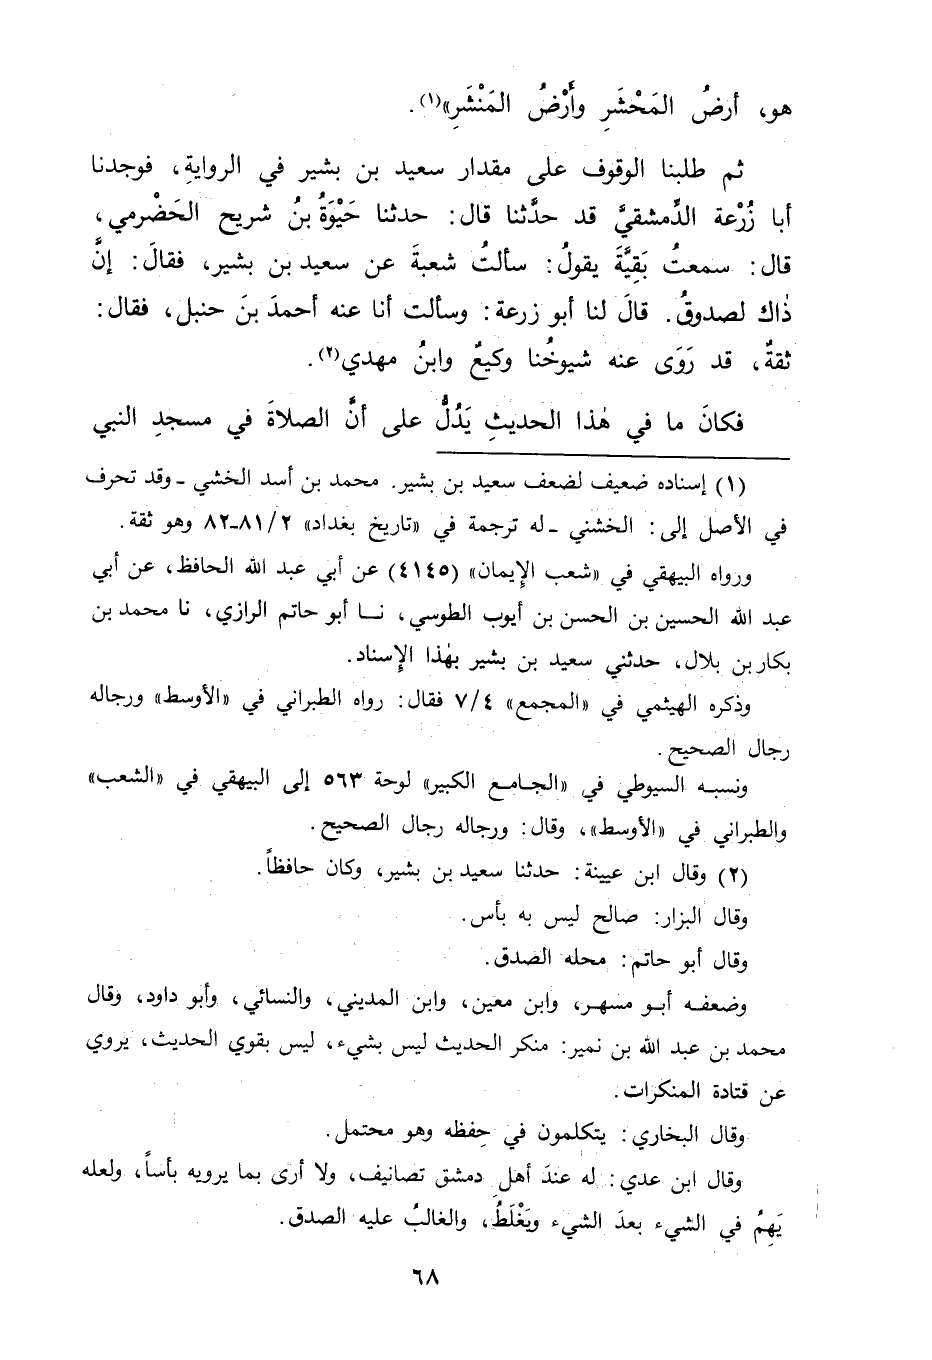 هو، أرضُ المَحْشَرِ وأَرْضُ المَنْشَرِ»(١).
ثم طلبنا الوقوف على مقدار سعيد بن بشير في الروايةِ، فوجدنا
أبا زُرْعة الدِّمشقيَّ قد حدَّثنا قال: حدثنا حَيْوَةُ بنُ شريح الحَضْرمي،
قال: سمعتُ بَقِيَّةَ يقولُ: سألتُ شعبةَ عن سعيد بن بشير، فقالَ: إنَّ
ذٰاك لصدوقُ. قالَ لنا أبو زرعة: وسألت أنا عنه أحمدَ بنَ حنبل، فقال:
ثقةٌ، قد رَوَى عنه شيوخُنا وكيعٌ وابنُ مهدي(٢).
فكانَ ما في هٰذا الحديثِ يَدُلُّ على أنَّ الصلاةَ في مسجدِ النبي
(١) إسناده ضعيف لضعف سعيد بن بشير. محمد بن أسد الخشي ـ وقد تحرف
في الأصل إلى: الخشني ـ له ترجمة في «تاريخ بغداد» ٨١/٢-٨٢ وهو ثقة.
ورواه البيهقي في «شعب الإيمان» (٤١٤٥) عن أبي عبد الله الحافظ، عن أبي
عبد الله الحسين بن الحسن بن أيوب الطوسي، نا أبو حاتم الرازي، نا محمد بن
بكار بن بلال، حدثني سعيد بن بشير بهٰذا الإسناد.
وذكره الهيثمي في «المجمع» ٧/٤ فقال: رواه الطبراني في «الأوسط» ورجاله
رجال الصحيح.
ونسبه السيوطي في «الجامع الكبير» لوحة ٥٦٣ إلى البيهقي في «الشعب»
والطبراني في «الأوسط»، وقال: ورجاله رجال الصحيح.
(٢) وقال ابن عيينة: حدثنا سعيد بن بشير، وكان حافظاً.
وقال البزار: صالح ليس به بأس.
وقال أبو حاتم: محله الصدق.
وضعفه أبو مسهر، وابن معين، وابن المديني، والنسائي، وأبو داود، وقال
محمد بن عبد الله بن نمير: منكر الحديث ليس بشيء، ليس بقوي الحديث، يروي
عن قتادة المنكرات.
وقال البخاري: يتكلمون في حِفظه وهو محتمل.
وقال ابن عدي: له عندَ أهلِ دمشق تصانيف، ولا أرى بما يرويه بأساً، ولعله
يَهِمُ في الشيء بعدَ الشيء ويَغْلَطُ، والغالبُ عليه الصدق.
٦٨